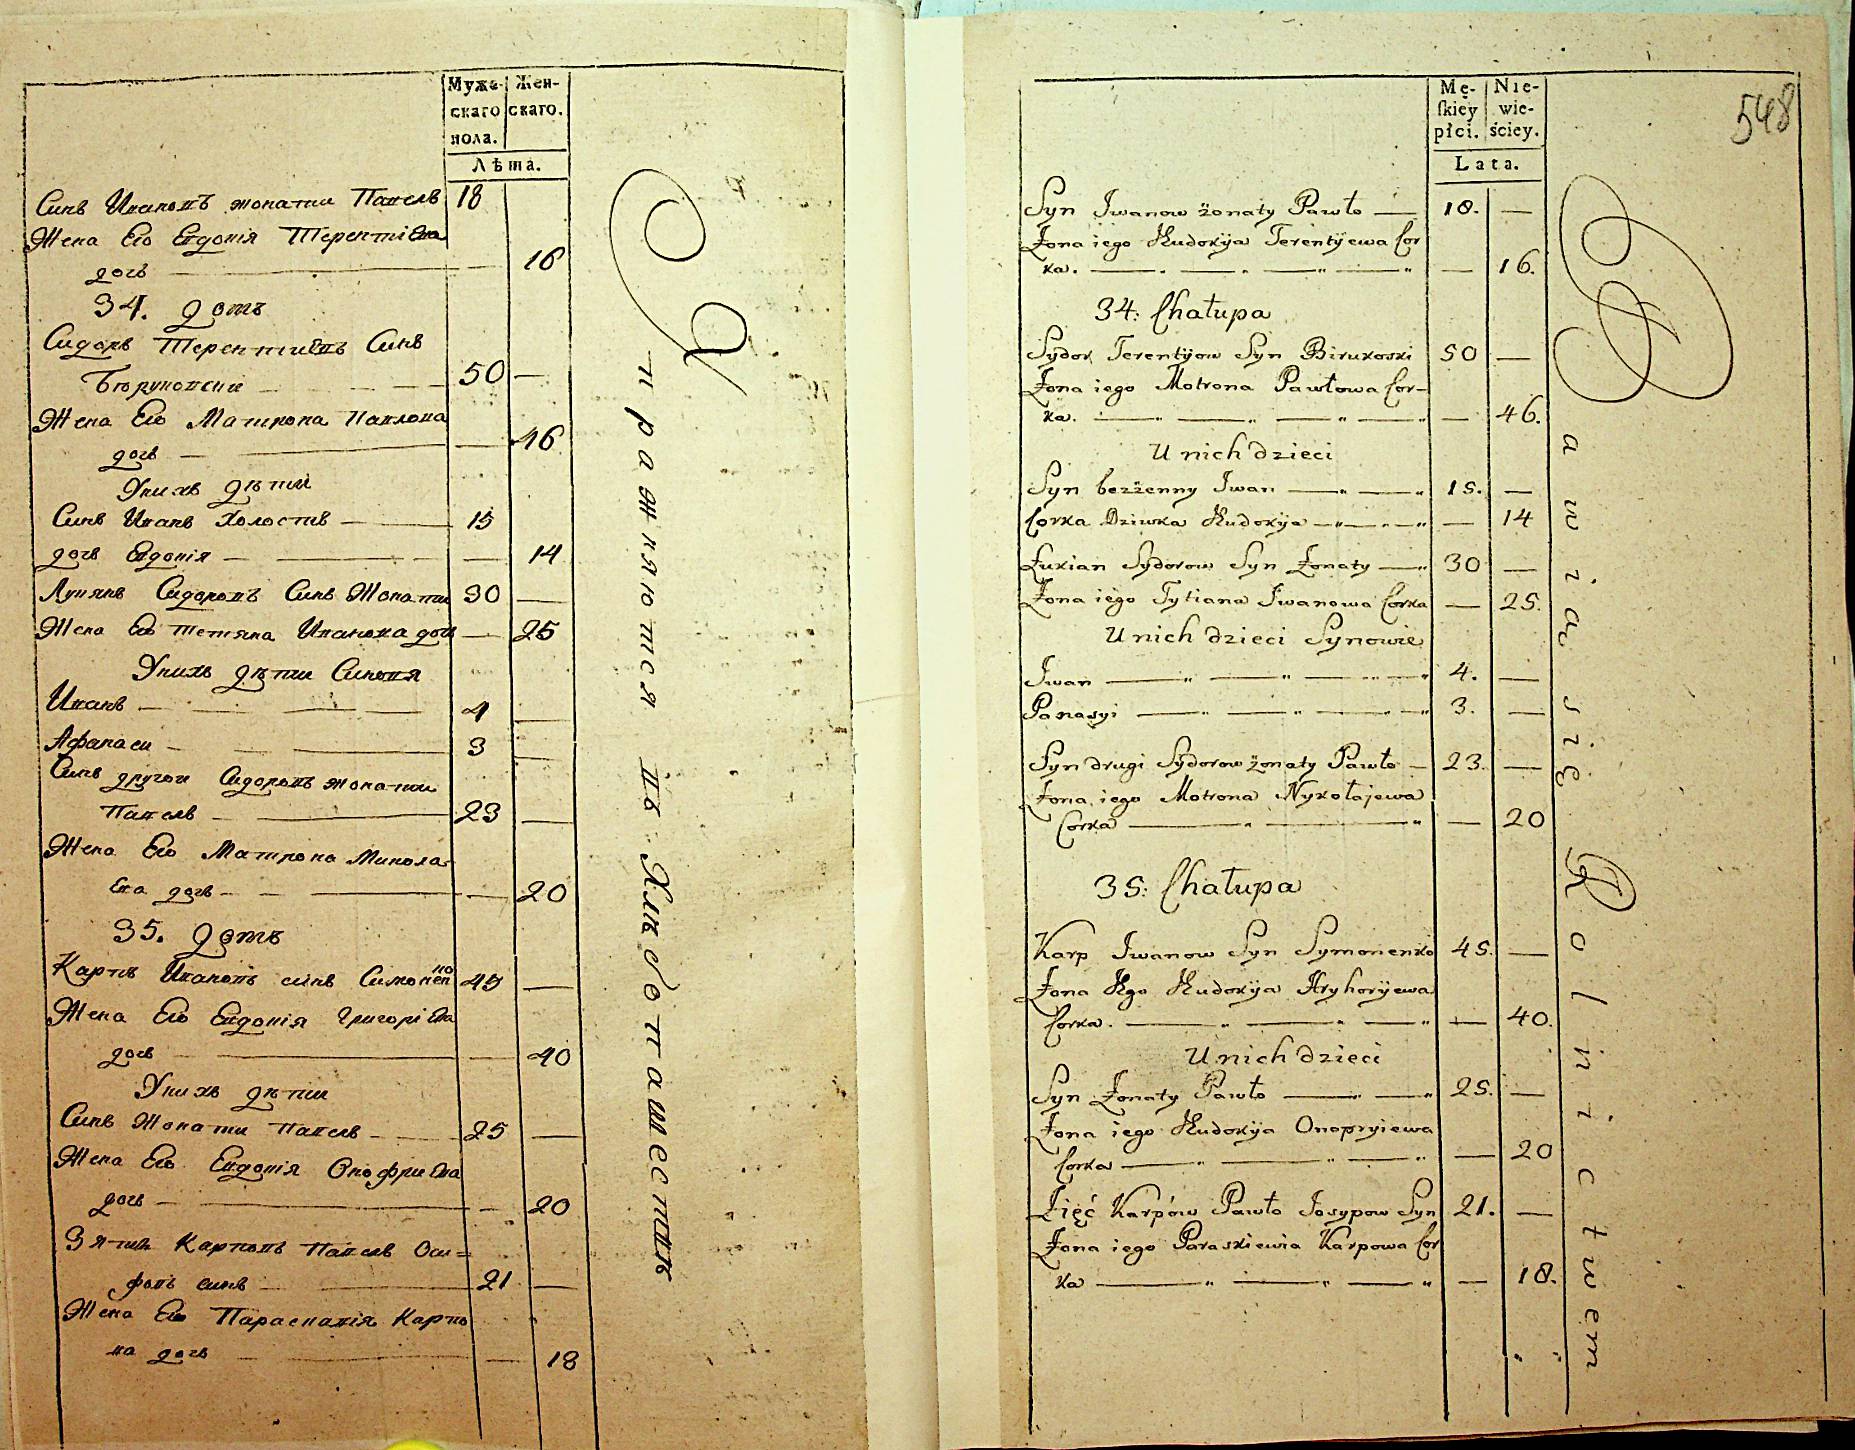 Мужескаго пола.
Женскаго.
Лѣта.
Синъ Ивановъ жонатии Павелъ 18
Жена Его Евдокія Терентіева
дочъ 16
34. домъ
Сидоръ Терентиевъ Синъ
Бѣруковски 50
Жена Его Матрона Павлова
дочъ 46
У нихъ дѣтии
Синъ Иванъ Холостъ 15
дочъ Евдокія 14
Лукянъ Сидоровъ Синъ Жонатии 30
Жена Его Тетяна Иванова дочъ 25
У нихъ дѣтии Синовя
Иванъ 4
Афанаси 3
Синъ другои Сидоровъ жонатии
Павелъ 23
Жена Его Матрона Микола-
ева дочъ 20
35. домъ
Карпъ Ивановъ синъ Симоненко 45
Жена Его Евдокія Григоріева
дочъ 40
У нихъ дѣтии
Синъ Жонати Павелъ 25
Жена Его Евдокія Онофриева
дочъ 20
Зять Карповъ Павелъ Оси=
фовъ синъ 21
Жена Его Параскавія Карпо
ва дочъ 18
Упражняются въ Хлѣбопашествѣ
548
Męskiey płci.
Niewieściey.
Lata.
Syn Iwanow żonaty Pawło 18.
Żona iego Eudokija Terentÿewa Cor
ka. 16.
34: Chałupa
Sydor Terentÿow Syn Birukoski 50
Żona iego Motrona Pawłowa Cor-
ka. 46.
U nich dzieci
Syn bezżenny Iwan 15.
Corka Dziwka Eudokija 14
Łukian Sydorow Syn Żonaty 30
Żona iego Tytiana Iwanowa Corka 25.
U nich dzieci Synowie
Iwan 4.
Panasyi 3.
Syn drugi Sydorow żonaty Pawło 23.
Żona iego Motrona Nykołajewa
Corka 20
35: Chałupa
Karp Iwanow Syn Symonenko 45.
Żona Ego Eudokija Hryhorÿewa
Corka. 40.
U nich dzieci
Syn Żonaty Pawło 25.
Żona iego Eudokija Onopryiewa
Corka 20
Zięć Karpów Pawło Josypow Syn 21.
Żona iego Paraskiewia Karpowa Cor
ka 18.
Bawią się Rolnictwem